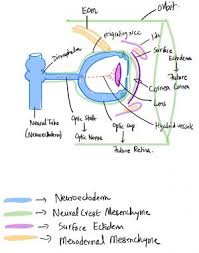 EOM
orbit
migrating NCC
Lids
Diencephalon
Surface
Ectoderm
Future
Cornea
Lens
Neural Tube
(Neuroectoderm)
Optic Stalk
Optic Nerve
Optic cup
Future Retina
Hyaloid vessels
→ Neuroectoderm
→ Neural Crest Mesenchyme
→ Surface Ectoderm
→ Mesodermal Mesenchyme